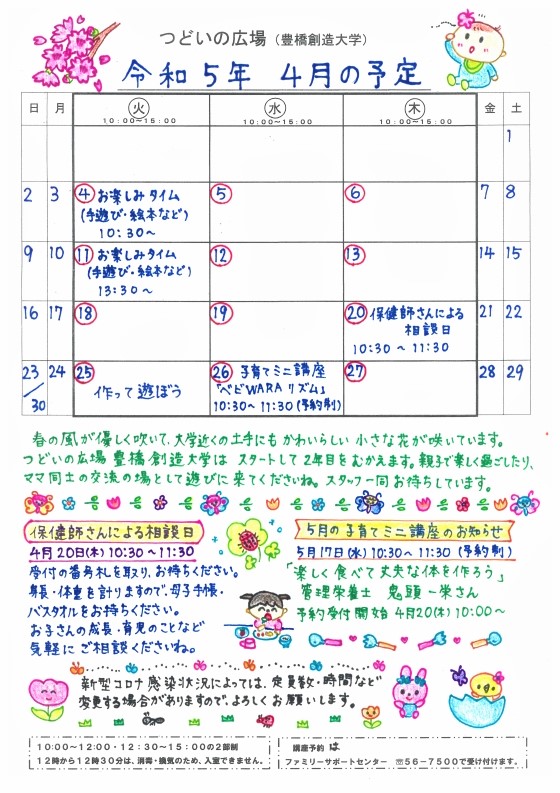 つどいの広場（豊橋創造大学）
令和５年 ４月の予定
日 月 火 水 木 金 土
10:00~15:00 10:00~15:00 10:00~15:00
1
2 3 4 お楽しみタイム 5 6 7 8
(手遊び・絵本など)
10:30~
9 10 11 お楽しみタイム 12 13 14 15
(手遊び・絵本など)
13:30~
16 17 18 19 20 保健師さんによる 21 22
相談日
10:30~11:30
23/30 24 25 26 子育てミニ講座 27 28 29
作って遊ぼう 「ベビWARAリズム」
10:30~11:30(予約制)
春の風が優しく吹いて、大学近くの土手にもかわいらしい小さな花が咲いています。
つどいの広場豊橋創造大学はスタートして2年目をむかえます。親子で楽しく過ごしたり、
ママ同士の交流の場として遊びに来てくださいね。スタッフ一同お待ちしています。
保健師さんによる相談日
4月20日(木)10:30~11:30
受付の番号札を取り、お待ちください。
身長・体重を計りますので、母子手帳・
バスタオルをお持ちください。
お子さんの成長・育児のことなど
気軽にご相談くださいね。
5月の子育てミニ講座のお知らせ
5月17日(水)10:30~11:30(予約制)
「楽しく食べて丈夫な体を作ろう」
管理栄養士 鬼頭一栄さん
予約受付開始 4月20(木)10:00~
新型コロナ感染状況によっては、定員数・時間など
変更する場合がありますので、よろしくお願いします。
10:00~12:00・12:30~15:00の2部制
12時から12時30分は、消毒・換気のため、入室できません。
講座予約は
ファミリーサポートセンター ☎56-7500で受け付けます。